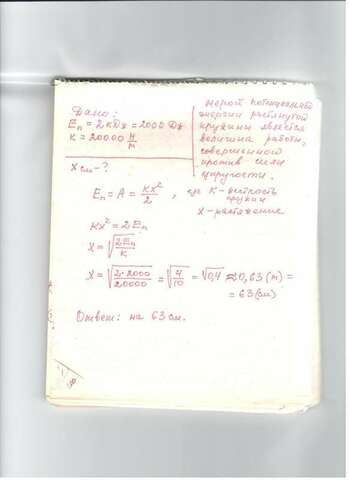 Дано:
Eп = 2 кДж = 2000 Дж
K = 20000 Н/м
X см - ?
Мерой потенциальной
энергии растянутой
пружины является
величина работы,
совершенной
против силы
упругости.
Eп = A = KX²/2 , где K - жесткость
пружин
X - растяжение
KX² = 2Eп
X = √(2Eп/K)
X = √(2·2000/20000) = √(4/10) = √0,4 ≈ 0,63 (м) =
= 63 (см)
Ответ: на 63 см.